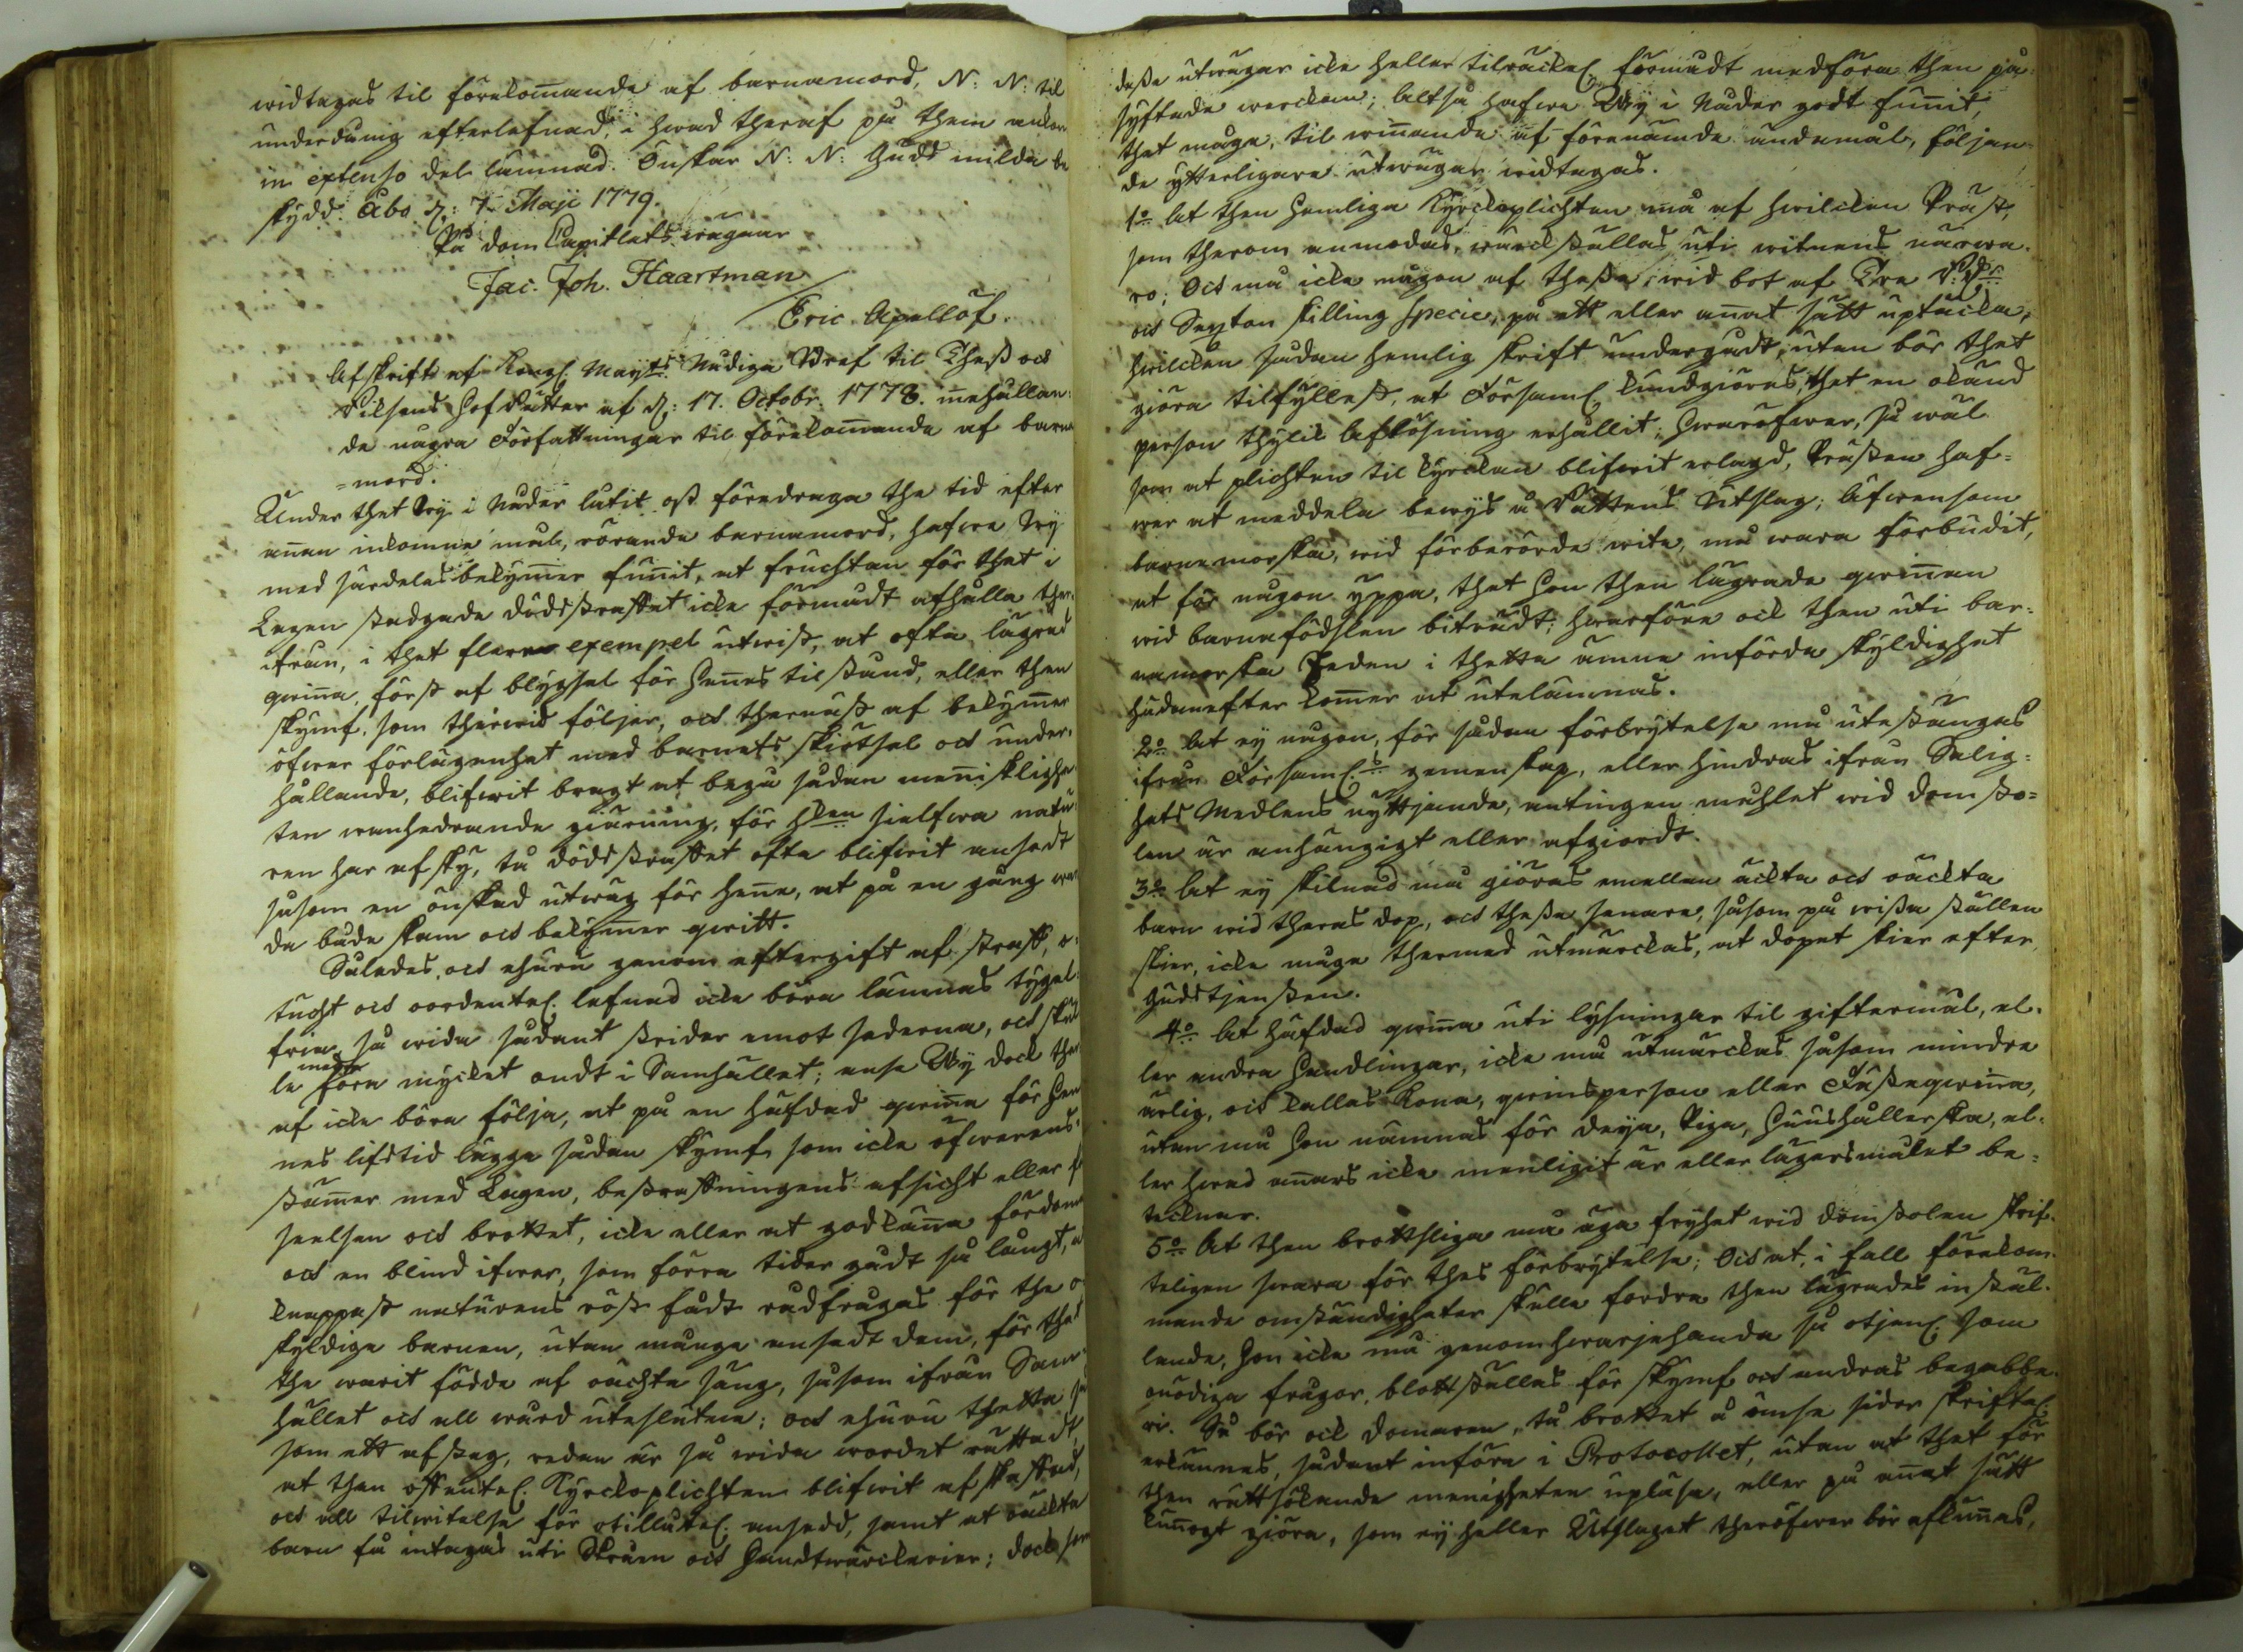 widtagas til förekom̄ande af barnamord, N: N: til
underdånig efterlefnad, i hwad theraf på them ankom
in extenso del lämnad. Önskar N: N: Guds milda be
skydd. Åbo d: 7 Maji 1779.
På Dom Capitlets wägnar
Jac. Joh. Haartman
Eric Apellöf.
Afskrift af Kongl. Mayts Nådiga Bref til Thess och
Riksens Hof Rätter af d: 17. Octobr. 1778. in̄ehållan-
de några Författningar til förekom̄ande af barna
=mord.
Under thet Wij i Nåder låtit oss föredraga the tid efter
an̄an inkomne mål, rörande barnamord, hafwa Wij
med särdeles bekym̄er fun̄it, at fruchtan för thet i
Lagen stadgade dödsstraffet icke förmådt afhålla ther-
ifrån, i thet flera exempel utwist, at ofta lägrad
qwin̄a, först af blygsel för Hen̄es tilstånd, eller then
skymf, som therwid följer, och thernäst af bekym̄er
öfwer förlägenhet med barnets skiötsel och under-
hållande, blifwit bragt at begå sådan men̄isklighe
ten wanhedrande giärning, för hwilken sielfwa natu
ren har afsky, då dödsstraffet ofta blifwit ansedt
såsom en önskad utwäg för hen̄e, at på en gång war
da både skam och bekym̄er qwitt.
Således, och ehuru genom eftergift af straff, o-
tucht och oordentel. lefnad icke böra lämnas tygel-
fria, så wida sådant strider emot sederna, och skul
le medföra mycket ondt i Samhället; anse Wij dock ther
af icke böra följa, at på en häfdad qwin̄a för Hen
nes lifstid lägga sådan skymf, som icke öfwerens-
stäm̄er med Lagen, bestraffningens afsicht eller f
seelsen och brottet, icke eller at godkän̄a fördom
och en blind ifwer, som förra tider gådt så långt, at
knappast naturens röst fådt rådfrågas för the o-
skyldiga barnen, utan många ansedt dem, för thet
the warit födde af oächta säng, såsom ifrån Sam-
hället och all wård uteslutna; och ehuru thetta så
som ett afsteg, redan är så wida wordet rättadt,
at then offentel. Kyrckoplichten blifwit afskaffad,
och all tilwitelse för otillåtel. ansedd, samt at oäckta
barn få intagas uti Skrån och Handtwärckerier; dock som
dessa utwägar icke heller tilräckel. förmådt medföra then på-
syftade werckan; Altså hafwe Wij i Nåder godt fun̄it,
thet måge, til win̄ande af förenämde ändamål, följan-
de ytterligare utwägar widtagas.
1o At then hemliga Kyrckoplichten må af hwilcken Präst,
som therom anmodas, wärckställas uti witnens närwa-
ro; Och må icke någon af thessa, wid bot af Tre R:dr
och Sexton skilling specie, på ett eller an̄at sätt uptäcka,
hwilcken sådan hemlig skrift undergådt, utan bör thet
giöra tilfyllest, at Församl. kundgiöres, thet en okänd
person thylik Aflösning erhållit; Hwaröfwer, så wäl
som at plichten til kyrckan blifwit erlagd, Prästen haf-
wer at meddela bewijs å Rättens Utslag; Äfwensom
barnmorska, wid förberörde wite, må wara förbudit,
at för någon yppa, thet hon then lägrade qwin̄an
wid barnafödslen biträdt; hwarföre ock then uti bar-
namorska Eeden i thetta ämne införde skyldighet
hädanefter kom̄er at utelämnas.
2o At ej någon, för sådan förbrytelse må utestängas
ifrån Församl:s gemenskap, eller hindras ifrån Salig-
hets Medlens nyttjande, antingen målet wid domsto-
len är anhängigt eller afgiordt.
3o At ej skilnad må giöras emellan äckta och oäckta
barn wid theras dop, och thesse senare, såsom på wissa ställen
skier, icke måge thermed utmärckas, at dopet skier efter
Gudstjensten.
4o At häfdad qwin̄a uti lysningar til giftermål, el-
ler andra Handlingar, icke må utmärckas såsom mindre
ärlig, och kallas Kona, qwinsperson eller Fästeqwin̄a,
utan må Hon nämnas för Deija, Piga, Huushållerska, el-
ler hwad an̄ars icke menligit är eller lägersmålet be-
tecknar.
5o At then brottsliga må äga fryhet wid domstolen skrif-
teligen swara för thes förbrytelse; Och at, i fall förekom-
mande omständigheter skulle fordra then lägrades instäl-
lande, Hon icke må genom hwarjehanda så otjenl. som
onödiga frågor, blottställas för skymf och andras begabbe-
ri. Så bör ock Domaren, då brottet å ömse sidor skriftel.
erkännes, sådant införa i Protocollet, utan at thet för
then rättsökande menigheten upläsa, eller på an̄at sätt
kun̄ogt giöra, som ej heller Utslaget theröfwer bör afkun̄as,